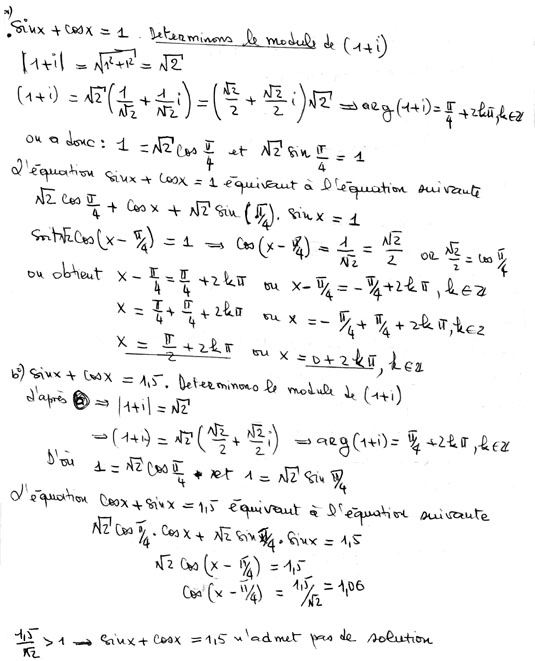 a)
. sinx + cosx = 1. Determinons le module de (1+i)
|1+i| = √1²+1² = √2
(1+i) = √2(1/√2 + 1/√2 i) = (√2/2 + √2/2 i)√2 ⇒ arg(1+i) = π/4 + 2kπ, k∈Z
on a donc : 1 = √2 cos π/4 et √2 sin π/4 = 1
L'équation sinx + cosx = 1 équivaut à l'équation suivante
√2 cos π/4 + cosx + √2 sin (π/4). sinx = 1
soit √2 cos(x - π/4) = 1 ⇒ cos(x - π/4) = 1/√2 = √2/2 or √2/2 = cos π/4
on obtient x - π/4 = π/4 + 2kπ ou x - π/4 = -π/4 + 2kπ, k∈Z
x = π/4 + π/4 + 2kπ ou x = -π/4 + π/4 + 2kπ, k∈Z
x = π/2 + 2kπ ou x = 0 + 2kπ, k∈Z
b°) sinx + cosx = 1,5. Determinons le module de (1+i)
d'après ⇒ |1+i| = √2
⇒ (1+i) = √2 (√2/2 + √2/2 i) ⇒ arg(1+i) = π/4 + 2kπ, k∈Z
D'où 1 = √2 cos π/4 et 1 = √2 sin π/4
L'équation cosx + sinx = 1,5 équivaut à l'équation suivante
√2 cos π/4 . cosx + √2 sin π/4 . sinx = 1,5
√2 cos(x - π/4) = 1,5
cos(x - π/4) = 1,5/√2 = 1,06
1,5/√2 > 1 ⇒ sinx + cosx = 1,5 n'admet pas de solution